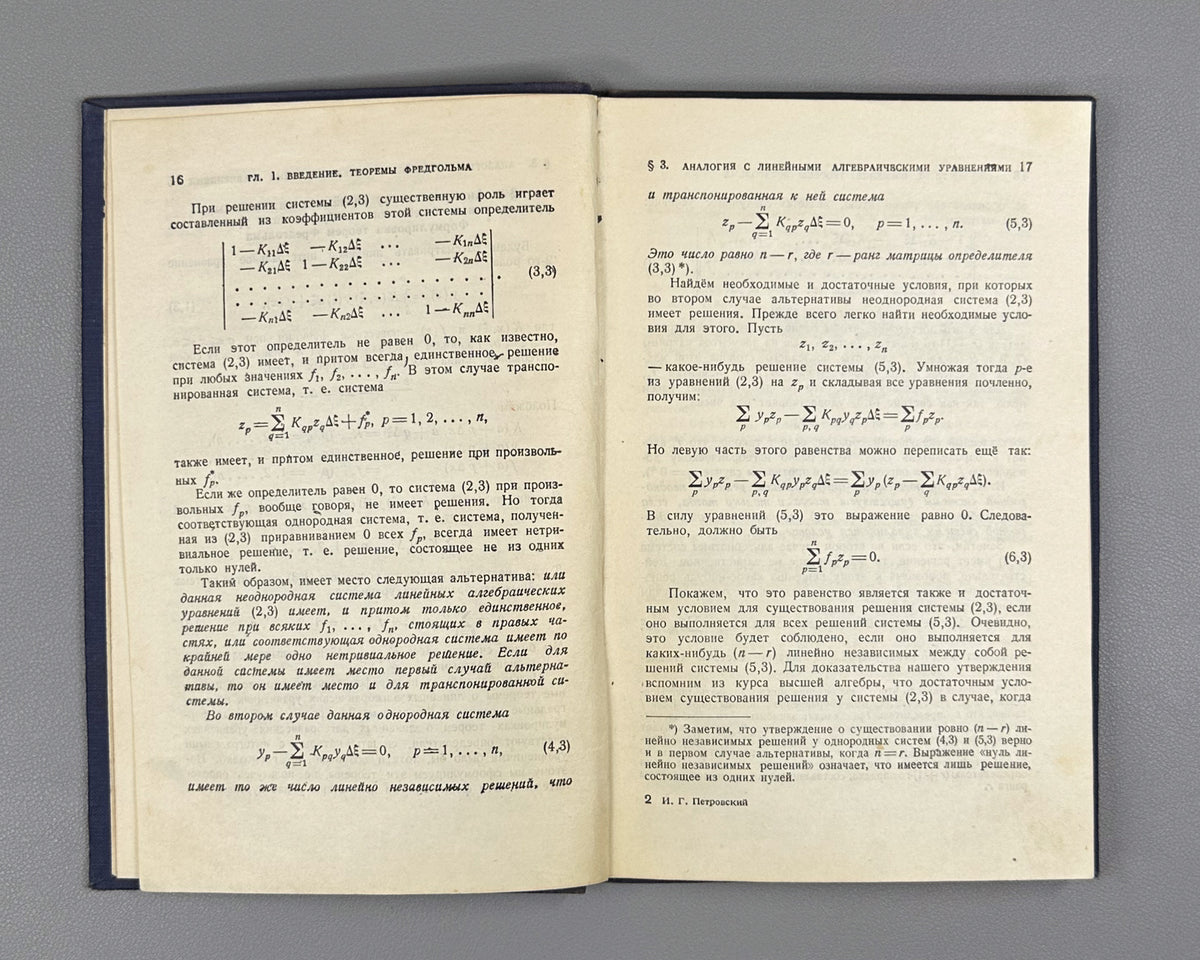 16 ГЛ. 1. ВВЕДЕНИЕ. ТЕОРЕМЫ ФРЕДГОЛЬМА
При решении системы (2,3) существенную роль играет
составленный из коэффициентов этой системы определитель
1 — K₁₁Δξ — K₁₂Δξ ... — K₁ₙΔξ
— K₂₁Δξ 1 — K₂₂Δξ ... — K₂ₙΔξ
. . . . . . . . . . . . . . . . . .
. . . . . . . . . . . . . . . . . .
— Kₙ₁Δξ — Kₙ₂Δξ ... 1 — KₙₙΔξ
. (3,3)
Если этот определитель не равен 0, то, как известно,
система (2,3) имеет, и притом всегда, единственное решение
при любых значениях f₁, f₂, ..., fₙ. В этом случае транспо-
нированная система, т. е. система
z_p = ∑_{q=1}^{n} K_{qp}z_qΔξ + f*_p, p = 1, 2, ..., n,
также имеет, и притом единственное, решение при произволь-
ных f*_p.
Если же определитель равен 0, то система (2,3) при произ-
вольных f_p, вообще говоря, не имеет решения. Но тогда
соответствующая однородная система, т. е. система, получен-
ная из (2,3) приравниванием 0 всех f_p, всегда имеет нетри-
виальное решение, т. е. решение, состоящее не из одних
только нулей.
Таким образом, имеет место следующая альтернатива: или
данная неоднородная система линейных алгебраических
уравнений (2,3) имеет, и притом только единственное,
решение при всяких f₁, ..., fₙ, стоящих в правых ча-
стях, или соответствующая однородная система имеет по
крайней мере одно нетривиальное решение. Если для
данной системы имеет место первый случай альтерна-
тивы, то он имеет место и для транспонированной си-
стемы.
Во втором случае данная однородная система
y_p — ∑_{q=1}^{n} K_{pq}y_qΔξ = 0, p = 1, ..., n, (4,3)
имеет то же число линейно независимых решений, что
§ 3. АНАЛОГИЯ С ЛИНЕЙНЫМИ АЛГЕБРАИЧЕСКИМИ УРАВНЕНИЯМИ 17
и транспонированная к ней система
z_p — ∑_{q=1}^{n} K_{qp}z_qΔξ = 0, p = 1, ..., n. (5,3)
Это число равно n — r, где r — ранг матрицы определителя
(3,3)*).
Найдём необходимые и достаточные условия, при которых
во втором случае альтернативы неоднородная система (2,3)
имеет решения. Прежде всего легко найти необходимые усло-
вия для этого. Пусть
z₁, z₂, ..., zₙ
— какое-нибудь решение системы (5,3). Умножая тогда p-е
из уравнений (2,3) на z_p и складывая все уравнения почленно,
получим:
∑_p y_pz_p — ∑_{p, q} K_{pq}y_qz_pΔξ = ∑_p f_pz_p.
Но левую часть этого равенства можно переписать ещё так:
∑_p y_pz_p — ∑_{p, q} K_{qp}y_pz_qΔξ = ∑_p y_p (z_p — ∑_q K_{qp}z_qΔξ).
В силу уравнений (5,3) это выражение равно 0. Следова-
тельно, должно быть
∑_{p=1}^{n} f_pz_p = 0. (6,3)
Покажем, что это равенство является также и достаточ-
ным условием для существования решения системы (2,3), если
оно выполняется для всех решений системы (5,3). Очевидно,
это условие будет соблюдено, если оно выполняется для
каких-нибудь (n — r) линейно независимых между собой ре-
шений системы (5,3). Для доказательства нашего утверждения
вспомним из курса высшей алгебры, что достаточным усло-
вием существования решения у системы (2,3) в случае, когда
*) Заметим, что утверждение о существовании ровно (n — r) ли-
нейно независимых решений у однородных систем (4,3) и (5,3) верно
и в первом случае альтернативы, когда n = r. Выражение «нуль ли-
нейно независимых решений» означает, что имеется лишь решение,
состоящее из одних нулей.
2 И. Г. Петровский